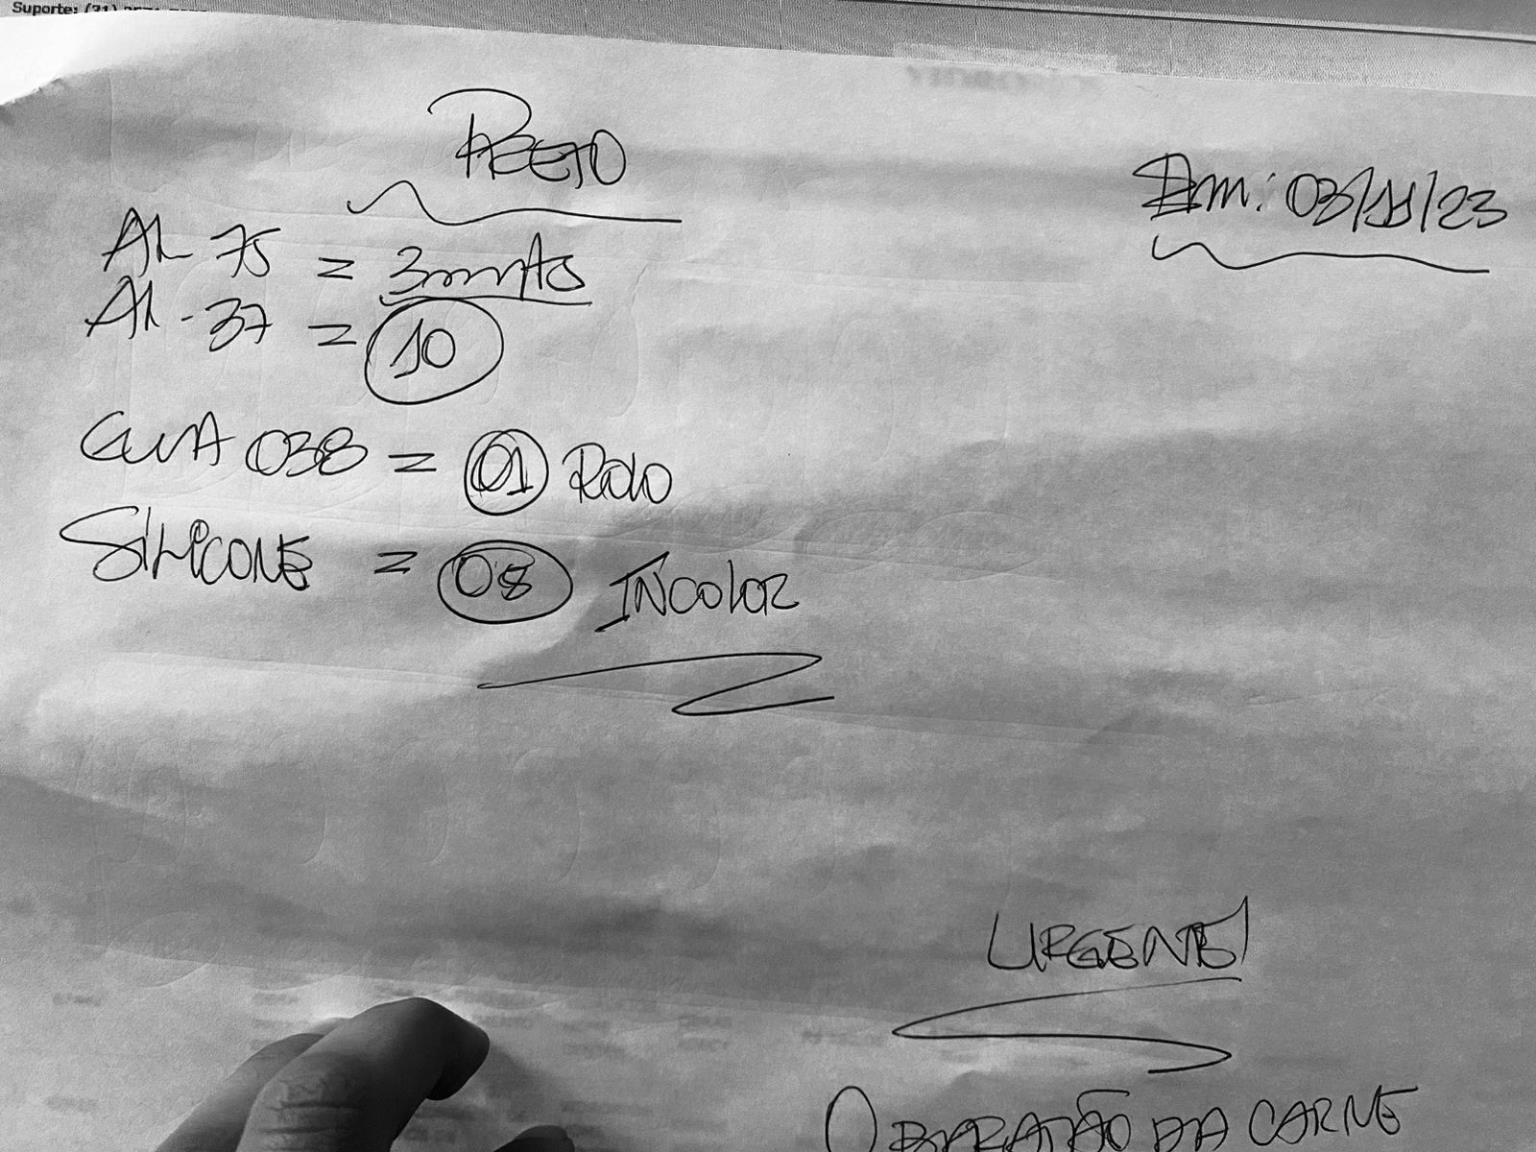 Suporte: (21)
PRETO
Em: 03/11/23
AL 75 = 3mmts
AL-37 = 10
GUA 038 = 01 ROLO
SILICONE = 08 INCOLOR
URGENTE!
O BARATÃO DA CARNE